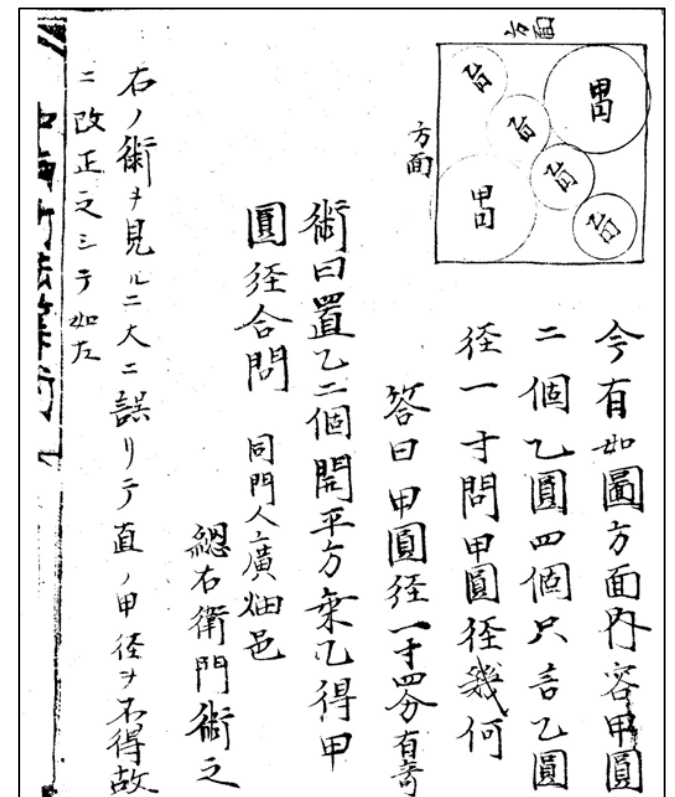 方面
方面
甲円
甲円
乙円
乙円
乙円
乙円
今有如圖方面內容甲圓
二個乙圓四個只言乙圓
径一寸問甲圓径幾何
答曰甲圓径一寸四分有奇
術曰置乙二個開平方乗乙得甲
圓径合問
同門人廣畑邑
總右衛門術之
右ノ術ヲ見ルニ大ニ誤リテ直ノ甲径ヲ不得故
ニ改正之ミテ如左